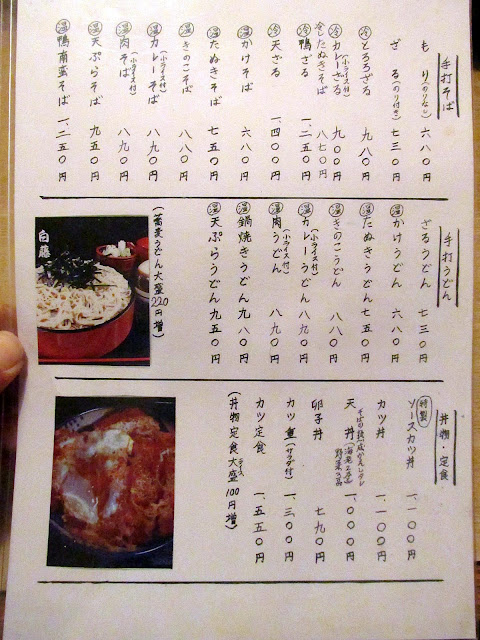 手打そば
もり(のりなし) 六八〇円
ざる(のり付き) 七三〇円
冷 とろろざる 九八〇円
冷 カレーざる(小ライス付) 九〇〇円
冷したぬきそば 八七〇円
冷 鴨ざる 一、二五〇円
冷 天ざる 一、四〇〇円
温 かけそば 六八〇円
温 たぬきそば 七五〇円
温 きのこそば 八八〇円
温 カレーそば(小ライス付) 八九〇円
温 肉そば(小ライス付) 八九〇円
温 天ぷらそば 九五〇円
温 鴨南蛮そば 一、二五〇円
手打うどん
ざるうどん 七三〇円
温 かけうどん 六八〇円
温 たぬきうどん 七五〇円
温 きのこうどん 八八〇円
温 カレーうどん(小ライス付) 八九〇円
温 肉うどん(小ライス付) 八九〇円
温 鍋焼きうどん 九八〇円
温 天ぷらうどん 九五〇円
(蕎麦うどん大盛220円増)
白藤
丼物・定食
特製 ソースカツ丼 一、一〇〇円
カツ丼 一、一〇〇円
天丼(海老2本 野菜3品) 一、〇〇〇円
そばの熟成かえしダレ
卵子丼 七九〇円
カツ重(サラダ付) 一、三〇〇円
カツ定食 一、五五〇円
(丼物定食大盛ライス100円増)